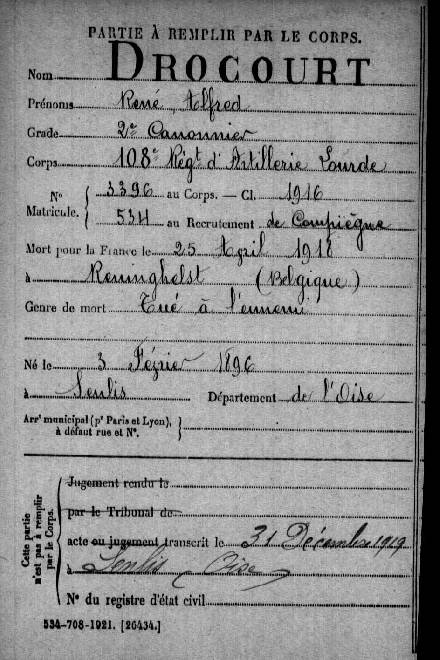 PARTIE À REMPLIR PAR LE CORPS.
Nom DROCOURT
Prénoms René Alfred
Grade 2e Canonnier
Corps 108e Régt d'Artillerie Lourde
N° Matricule. { 3396 au Corps. — Cl. 1916
534 au Recrutement de Compiègne
Mort pour la France le 25 April 1918
à Reninghelst (Belgique)
Genre de mort Tué à l'ennemi
Né le 3 Février 1896
à Senlis Département de l'Oise
Arrt municipal (pr Paris et Lyon), à défaut rue et N°. }
Cette partie n'est pas à remplir par le Corps.
Jugement rendu le
par le Tribunal de
acte ou jugement transcrit le 31 Décembre 1919
à Senlis Oise
N° du registre d'état civil
534-708-1921. [26434.]